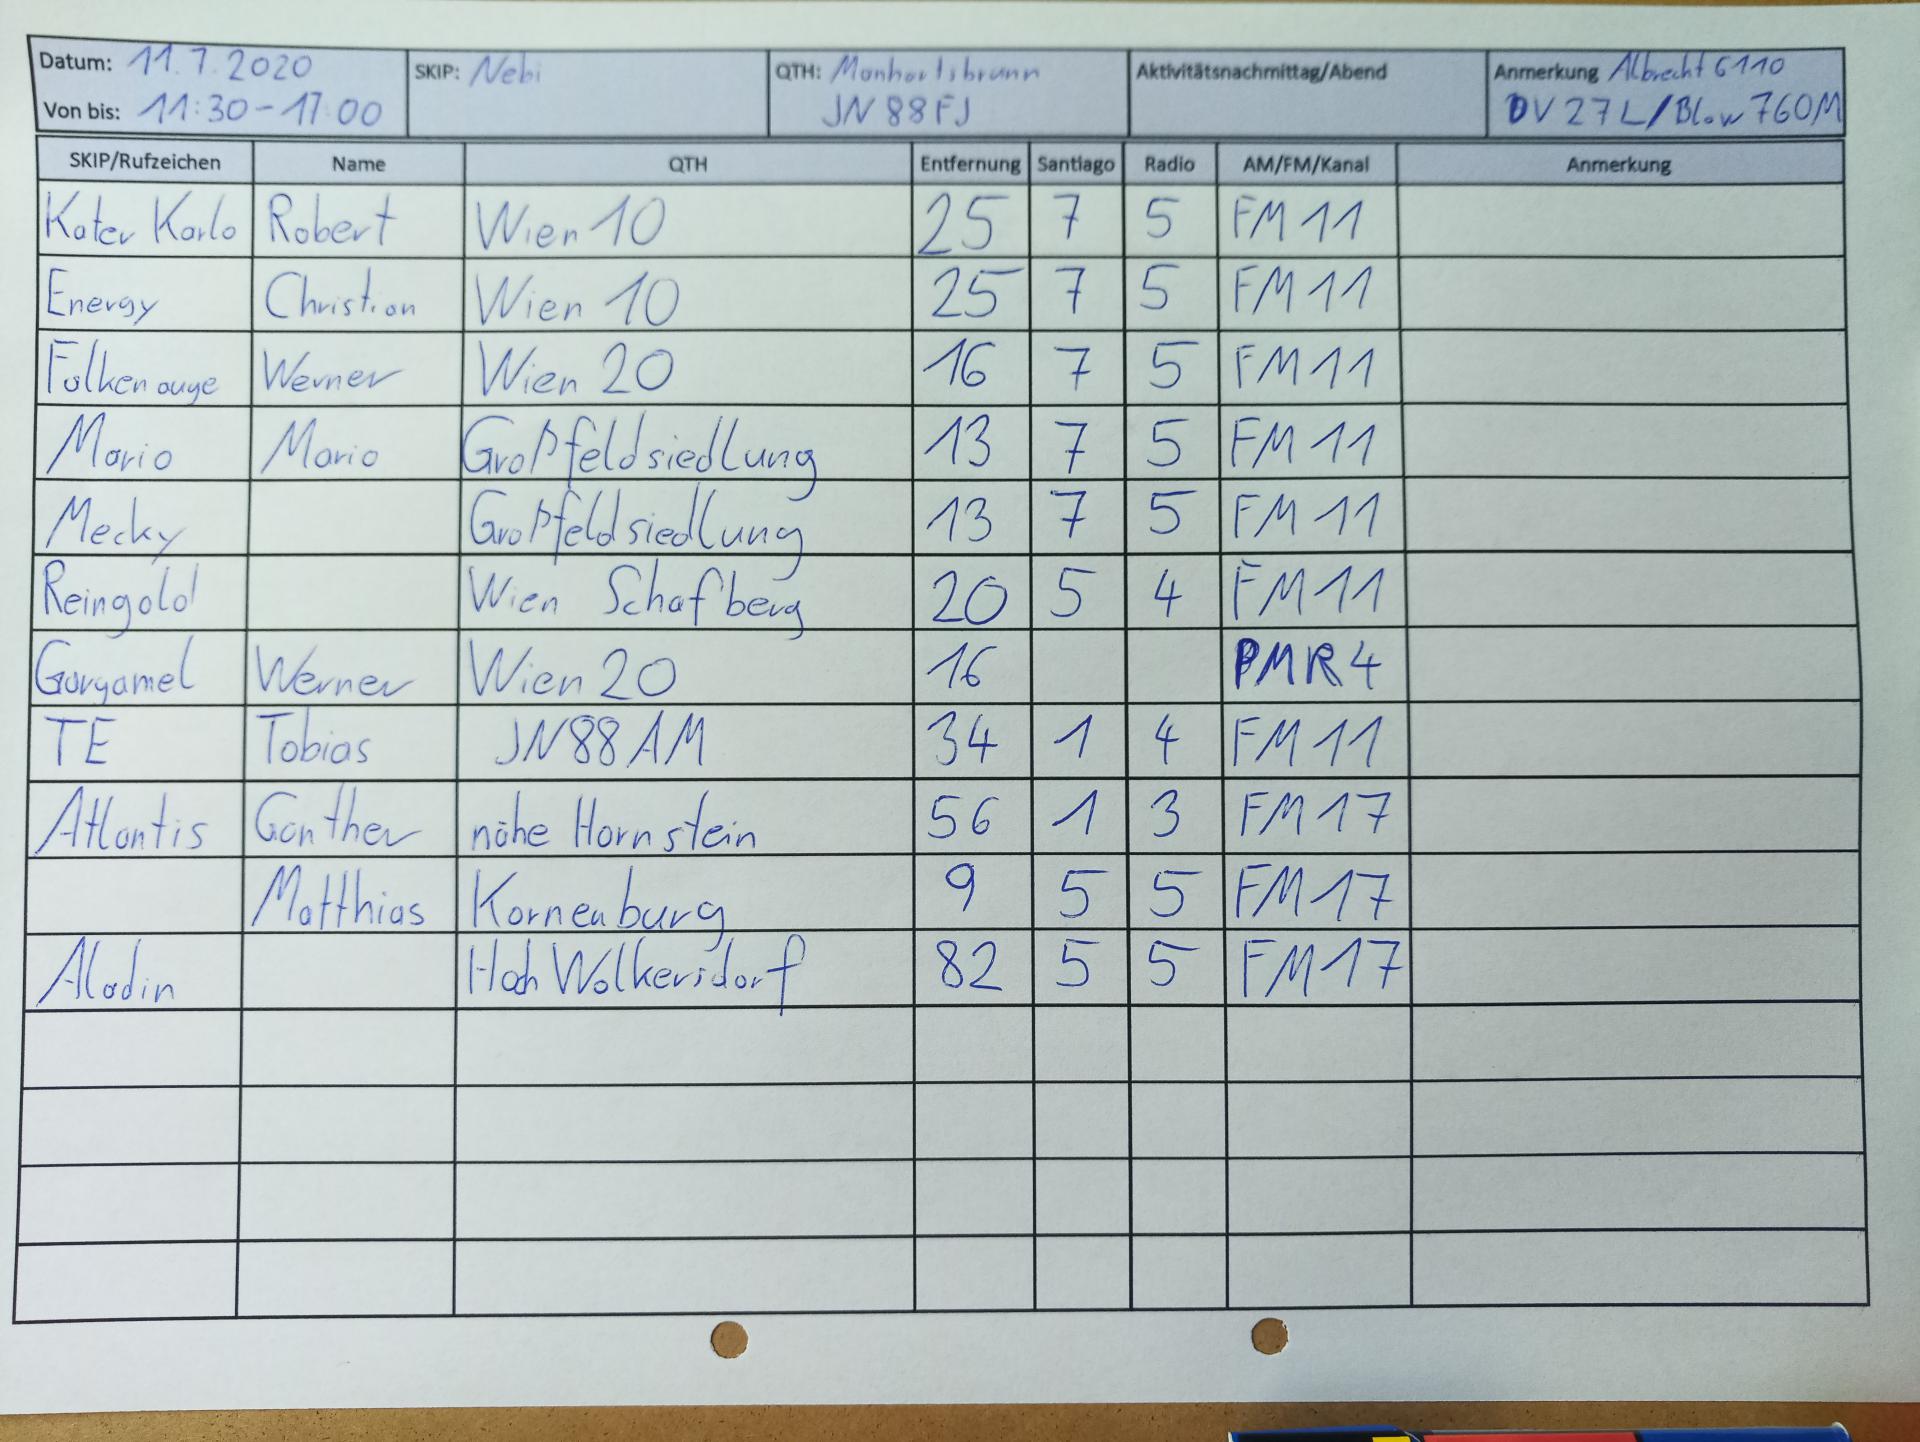 Datum: 11.7.2020 SKIP: Nebi QTH: Manhartsbrunn Aktivitätsnachmittag/Abend Anmerkung Albrecht 6110
Von bis: 11:30-17:00 JN88FJ DV27L/Blow 760M
SKIP/Rufzeichen Name QTH Entfernung Santiago Radio AM/FM/Kanal Anmerkung
Kater Karlo Robert Wien 10 25 7 5 FM 11
Energy Christian Wien 10 25 7 5 FM 11
Falkenauge Werner Wien 20 16 7 5 FM 11
Mario Mario Großfeldsiedlung 13 7 5 FM 11
Mecky Großfeldsiedlung 13 7 5 FM 11
Reingold Wien Schafberg 20 5 4 FM 11
Gargamel Werner Wien 20 16 PMR 4
TE Tobias JN88AM 34 1 4 FM 11
Atlantis Günther nähe Hornstein 56 1 3 FM 17
Matthias Korneuburg 9 5 5 FM 17
Aladin Hoch Wolkersdorf 82 5 5 FM 17